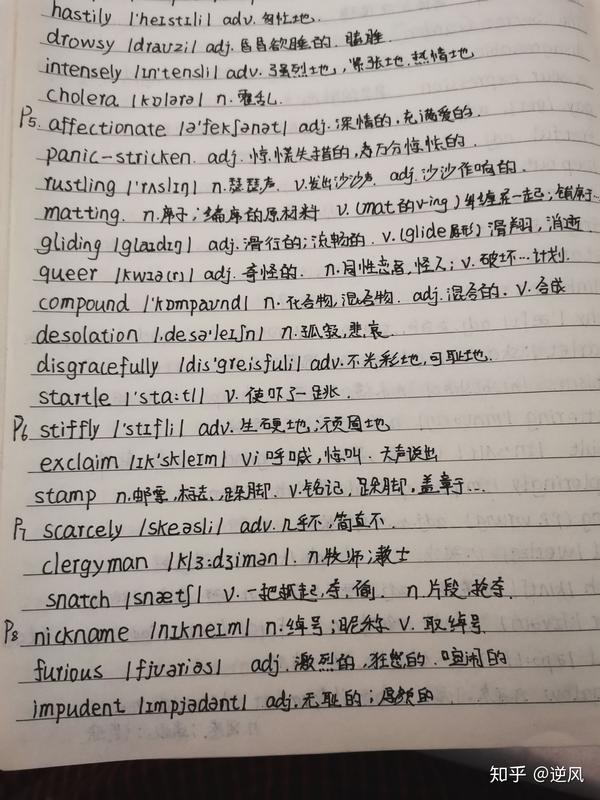 hastily |'heɪstɪli| adv. 匆忙地.
drowsy |draʊzi| adj. 昏昏欲睡的. 瞌睡
intensely |ɪn'tensli| adv. 强烈地, 紧张地. 热情地
cholera |kɒlərə| n. 霍乱.
P5. affectionate |ə'fekʃənət| adj. 深情的, 充满爱的.
panic-stricken. adj. 惊慌失措的, 万分惊恐的.
rustling |'rʌslɪŋ| n. 瑟瑟声. v.发出沙沙声. adj. 沙沙作响的.
matting. n.席子; 编席的原材料 v.(mat的v-ing) 纠缠在一起; 铺席于…
gliding |glaɪdɪŋ| adj. 滑行的; 流畅的. v.(glide原形) 滑翔, 消逝
queer |kwɪə(r)| adj. 奇怪的. n.同性恋者, 怪人; v. 破坏…计划.
compound |'kɒmpaʊnd| n. 化合物, 混合物. adj. 混合的. v. 合成
desolation |ˌdesə'leɪʃn| n. 孤寂, 悲哀.
disgracefully |dis'greisfuli| adv. 不光彩地, 可耻地.
startle |'stɑ:tl| v. 使吓了一跳.
P6 stiffly |'stɪfli| adv. 生硬地; 顽固地
exclaim |ɪk'skleɪm| vi 呼喊, 惊叫. 大声说出
stamp n.邮票, 标志、跺脚. v.铭记, 跺脚, 盖章于…
P7 scarcely |skeəsli| adv. 几乎不, 简直不.
clergyman |klɜ:dʒimən|. n.牧师; 教士
snatch |snætʃ| v. 一把抓起, 夺, 偷. n. 片段, 抢夺.
P8 nickname |nɪkneɪm| n. 绰号; 昵称 v. 取绰号
furious |fjʊəriəs| adj. 激烈的, 狂怒的. 喧闹的
impudent |ɪmpjədənt| adj. 无耻的; 厚颜的
知乎 @逆风